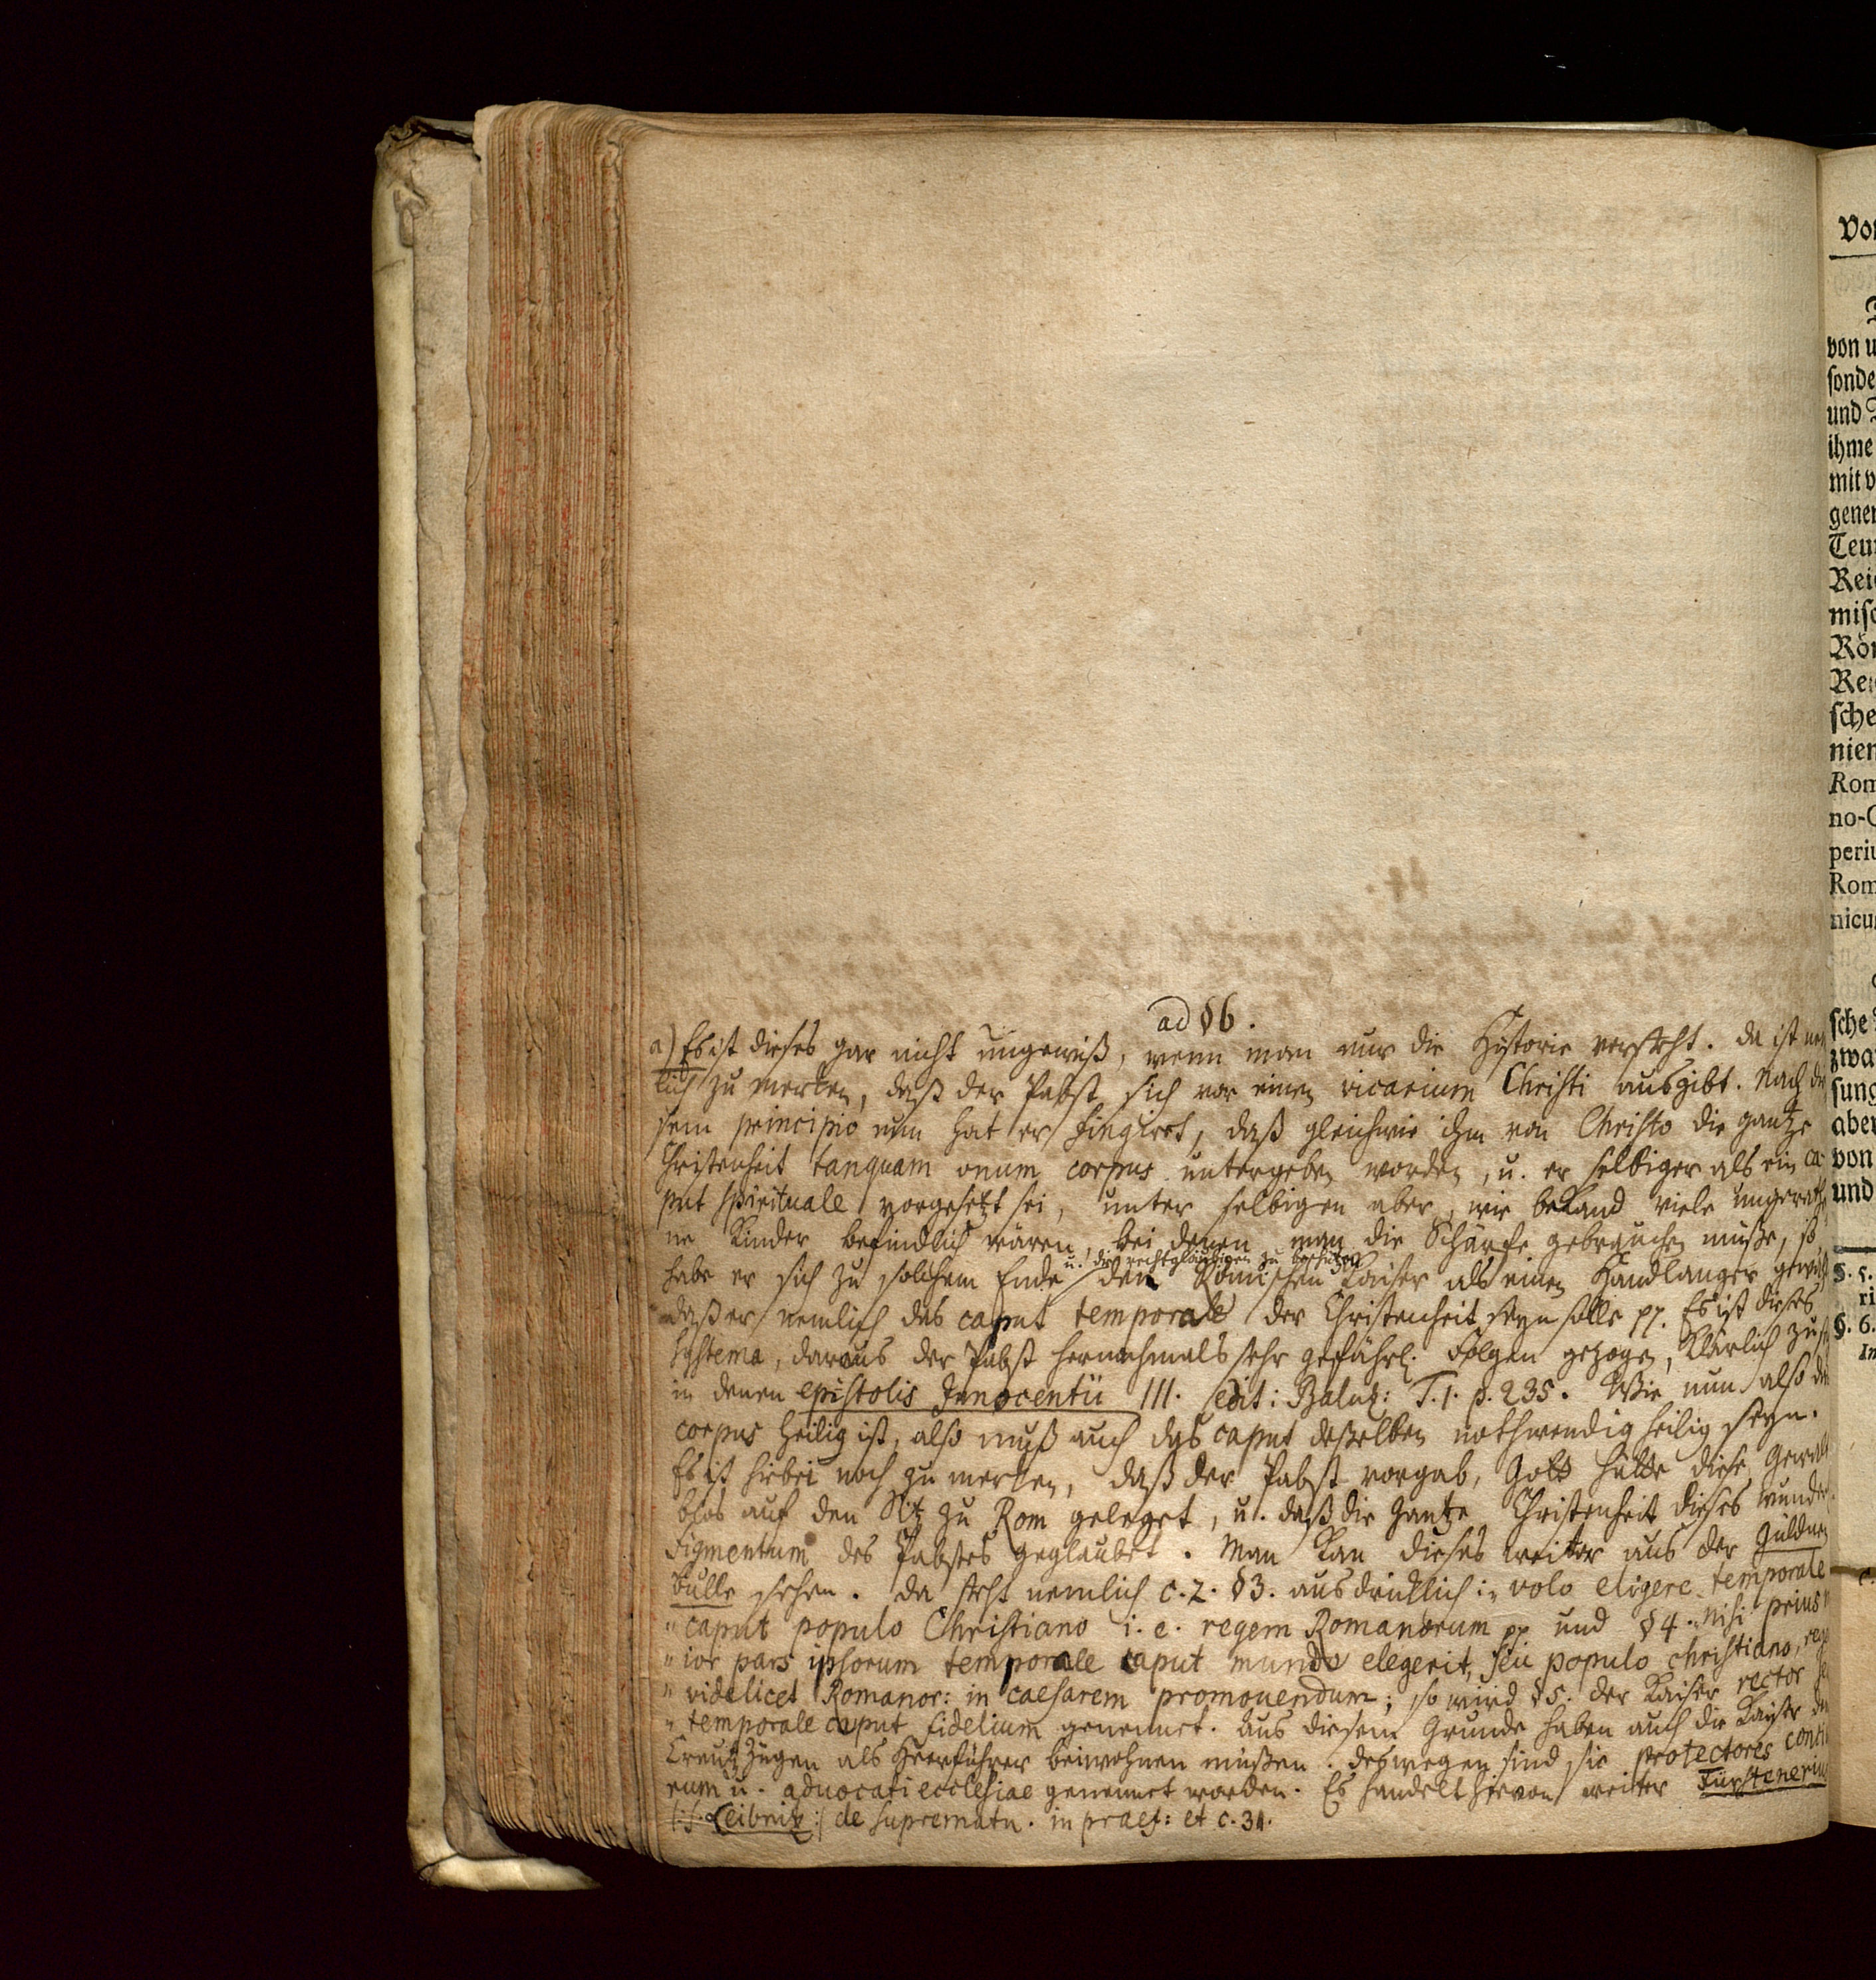 ad § 6.
a) Es ist dieses gar nicht ungewiß, wenn man nur die Historie versteht. Da ist nem
lich zu merken, daß der Pabst sich vor einen vicarium Christi ausgibt. Nach die
sem principio nun hat er fingiret, daß gleichwie ihm von Christo die gantze
Christenheit tanquam unum corpus untergeben worden, u. er selbiger als ein ca-
put spirituale vorgesetzt sei, unter selbigen aber, wie bekand viele ungerathe-
ne Kinder befindlich wären, bei denen man die Schärfe gebrauchen müße, so
u. die rechtgläubigen zu beschützen
habe er sich zu solchem Ende den Römischen Kaiser als einen Handlanger
daß er nemlich das caput temporale der Christenheit seyn solle pp. Es ist dieses
Systema, daraus der Pabst hernachmals sehr gefährl. Folgen gezogen, klärlich zu
in denen epistolis Innocentii III. edit: Baluz: T. 1. p. 235. Wie nun also
corpus heilig ist, also muß auch das caput deßelben nothwendig heilig seyn.
Es ist hirbei noch zu merken, daß der Pabst vorgab, Gott hätte diese Gewalt
blos auf den Sitz zu Rom geleget, u. daß die gantze Christenheit dieses
Figmentum des Pabstes geglaubet. Man kan dieses weiter aus der Güldnen
Bulle sehen. Da steht nemlich c. 2. § 3. ausdrücklich: „volo eligere temporale
„caput populo Christiano i. e. regem Romanorum pp und § 4. „nisi prius
„ior pars ipsorum temporale caput mundo elegerit, seu populo christiano,
„videlicet Romanor: in caesarem promouendum; so wird § 5. der Kaiser rector
„temporale caput fidelium genennet. Aus diesem Grunde haben auch die Kaiser den
Creutzzügen als Heerführer beiwohnen müßen. deswegen sind sie protectores
rum u. aduocati ecclesiae genennet worden. Es handelt hiervon weiter Fürstenerius
|: s. Leibnitz :| de suprematu. in praef: et c. 31.
Von
von u
sonde
und
ihme
mit v
gener
Teu
Rei
misc
Röm
Rei
sche
nien
Rom
no-G
periu
Rom
nicu
sche
zwar
sung
aber
von
und
§. 5.
ri
§. 6.
In